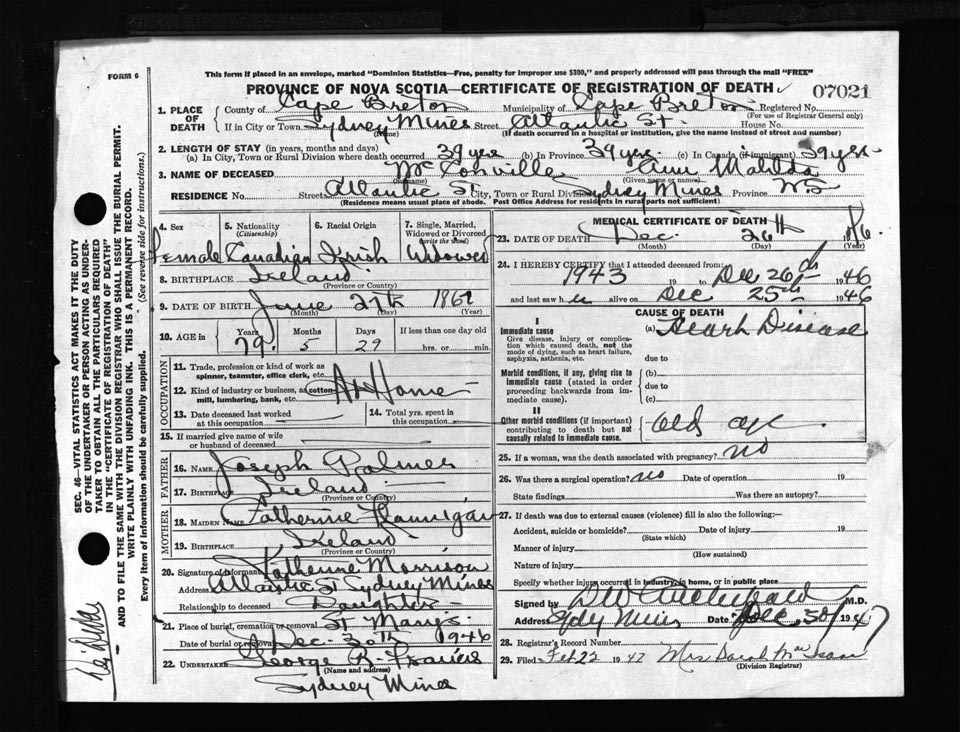 FORM 6
This form if placed in an envelope, marked "Dominion Statistics—Free, penalty for improper use $300," and properly addressed will pass through the mail "FREE"
PROVINCE OF NOVA SCOTIA—CERTIFICATE OF REGISTRATION OF DEATH
07021
1. PLACE OF DEATH
County of Cape Breton Municipality of Cape Breton Registered No.
(For use of Registrar General only)
If in City or Town Sydney Mines Street Atlantic St. House No.
(Name) (If death occurred in a hospital or institution, give the name instead of street and number)
2. LENGTH OF STAY (in years, months and days)
(a) In City, Town or Rural Division where death occurred 39 yrs (b) In Province 39 yrs. (c) In Canada (if immigrant) 39 yrs.
3. NAME OF DECEASED McConville Ann Matilda
(Given name or names)
RESIDENCE No. Street Atlantic St City, Town or Rural Division Sydney Mines Province NS
(Residence means usual place of abode. Post Office Address for residents in rural parts not sufficient)
4. Sex 5. Nationality (Citizenship) 6. Racial Origin 7. Single, Married, Widowed or Divorced (write the word)
Female Canadian Irish Widowed
8. BIRTHPLACE Ireland
(Province or Country)
9. DATE OF BIRTH June 27th 1867
(Month) (Day) (Year)
10. AGE in Years Months Days If less than one day old
79 5 29 hrs. or min.
OCCUPATION
11. Trade, profession or kind of work as spinner, teamster, office clerk, etc.
12. Kind of industry or business, as cotton-mill, lumbering, bank, etc. At Home
13. Date deceased last worked at this occupation 14. Total yrs. spent in this occupation
15. If married give name of wife or husband of deceased
FATHER
16. NAME Joseph Palmer
17. BIRTHPLACE Ireland
(Province or Country)
MOTHER
18. MAIDEN NAME Catherine Hannigan
19. BIRTHPLACE Ireland
(Province or Country)
20. Signature of informant Katherine Morrison
Address Atlantic St Sydney Mines
Relationship to deceased Daughter
21. Place of burial, cremation or removal St Mary's
Date of burial or removal Dec. 30th 1946
22. UNDERTAKER George R. Francis
(Name and address)
Sydney Mines
MEDICAL CERTIFICATE OF DEATH
23. DATE OF DEATH Dec. 26th
(Month) (Day) (Year)
24. I HEREBY CERTIFY that I attended deceased from:
1943 19 to Dec 26th 1946
and last saw h alive on Dec 25th 1946
CAUSE OF DEATH
I
Immediate cause (a) Heart Disease
Give disease, injury or complication which caused death, not the mode of dying, such as heart failure, asphyxia, asthenia, etc.
due to
Morbid conditions, if any, giving rise to immediate cause (stated in order proceeding backwards from immediate cause).
(b)
due to
(c)
II
Other morbid conditions (if important) contributing to death but not causally related to immediate cause.
old age
25. If a woman, was the death associated with pregnancy? no
26. Was there a surgical operation? no Date of operation 19
State findings Was there an autopsy?
27. If death was due to external causes (violence) fill in also the following:—
Accident, suicide or homicide? Date of injury 19
(State which)
Manner of injury
(How sustained)
Nature of injury
Specify whether injury occurred in industry, in home, or in public place
Signed by M.D.
Address Sydy Mines Date Dec 30
28. Registrar's Record Number
29. Filed Feb 22 1947 Mrs Sarah
(Division Registrar)
SEC. 46—VITAL STATISTICS ACT MAKES IT THE DUTY
OF THE UNDERTAKER OR PERSON ACTING AS UNDER-
TAKER TO OBTAIN ALL THE PARTICULARS REQUIRED
IN THE "CERTIFICATE OF REGISTRATION OF DEATH"
AND TO FILE THE SAME WITH THE DIVISION REGISTRAR WHO SHALL ISSUE THE BURIAL PERMIT.
WRITE PLAINLY WITH UNFADING INK. THIS IS A PERMANENT RECORD.
Every item of information should be carefully supplied. (See reverse side for instructions.)